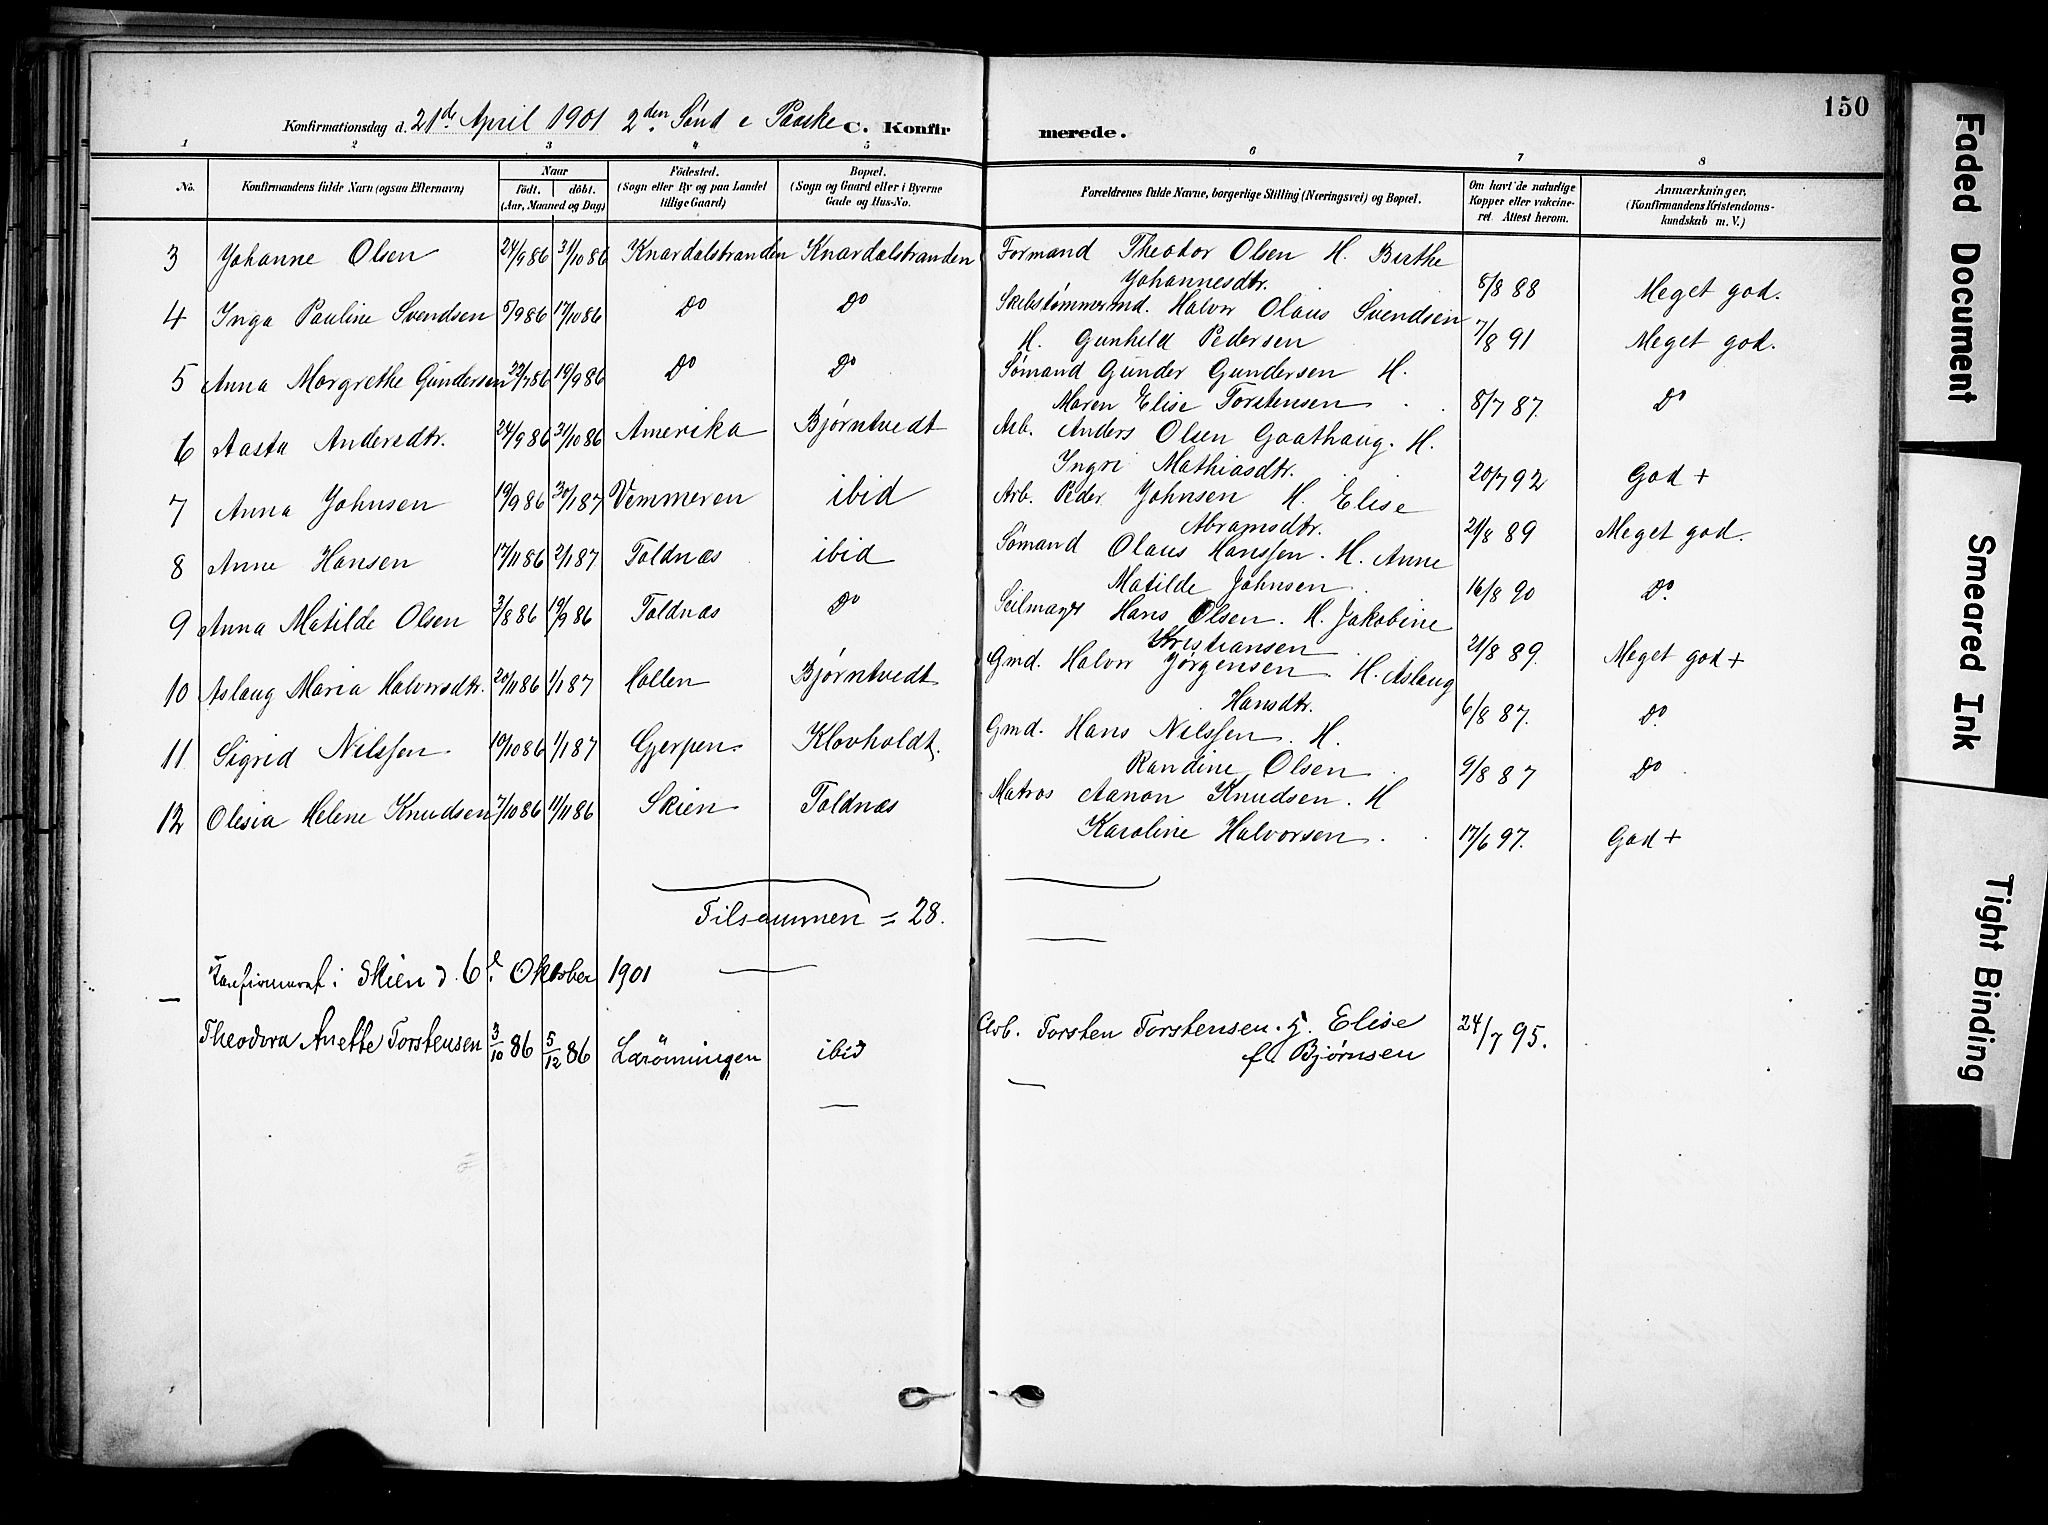 150
Konfirmationsdag d. 21de April 1901 2den Sønd e Paaske C. Konfirmerede.
1 2 3 4 5 6 7 8
No. Konfirmandens fulde Navn (ogsaa Efternavn) Naar födt. döbt. (Aar, Maaned og Dag) Födested. (Sogn eller By og paa Landet tillige Gaard) Bopæl. (Sogn og Gaard eller i Byerne Gade og Hus-No. Forældrenes fulde Navne, borgerlige Stilling (Næringsvei) og Bopæl. Om havt de naturlige Kopper eller vakcineret. Attest herom. Anmærkninger, (Konfirmandens Kristendomskundskab m. V.)
3 Johanne Olsen 24/9 86 31/10 86 Knardalstranden Knardalstranden Formand Theodor Olsen H. Birthe
Johannesdtr. 8/8 88 Meget god.
4 Inga Pauline Svendsen 5/9 86 17/10 86 Do Do Skibstømmermd. Halvor Olaus Svendsen
H. Gunhild Pedersen 7/8 91 Meget god.
5 Anna Margrethe Gundersen 22/7 86 19/9 86 Do Do Sømand Gunder Gundersen H.
Maren Elise Torstensen 8/7 87. Do
6 Aasta Andersdtr. 24/9 86 31/10 86 Amerika Bjørntvedt Arb. Anders Olsen Gaathaug. H.
Ingri Mathiasdtr. 20/7 92 God +
7 Anna Johnsen 19/9 86 30/1 87 Vemmeren ibid Arb. Peder Johnsen H. Elise
Abramsdtr. 21/8 89 Meget god.
8 Anne Hansen 17/11 86 2/1 87 Toldnæs ibid Sømand Olaus Hanssen. H. Anne
Matilde Johnsen. 16/8 90 Do.
9 Anna Matilde Olsen 3/8 86 19/9 86 Toldnæs Do Seilmager Hans Olsen. H. Jakobine
Kristiansen 21/8 89. Meget god +
10 Aslaug Maria Halvorsdtr. 20/11 86 1/1 87 Hollen Bjørntvedt Gmd. Halvor Jørgensen H. Aslaug
Hansdtr. 6/8 87. Do.
11 Sigrid Nilssen. 10/10 86 1/1 87 Gjerpen. Klovholdt. Gmd. Hans Nilssen. H.
Randine Olsen 9/8 87 Do
12 Olesia Helene Knudsen 7/10 86 11/11 86 Skien Toldnæs Matros Aanon Knudsen. H
Karoline Halvorsen. 17/6 97. God +
Tilsammen = 28.
Konfirmeret i Skien d. 6t. Oktober 1901
Theodora Anette Torstensen 3/10 86 5/12 86 ibid Arb. Torsten Torstensen. H. Elise
f. Bjørnsen 24/7 95.
Faded Document
Smeared Ink
Tight Binding